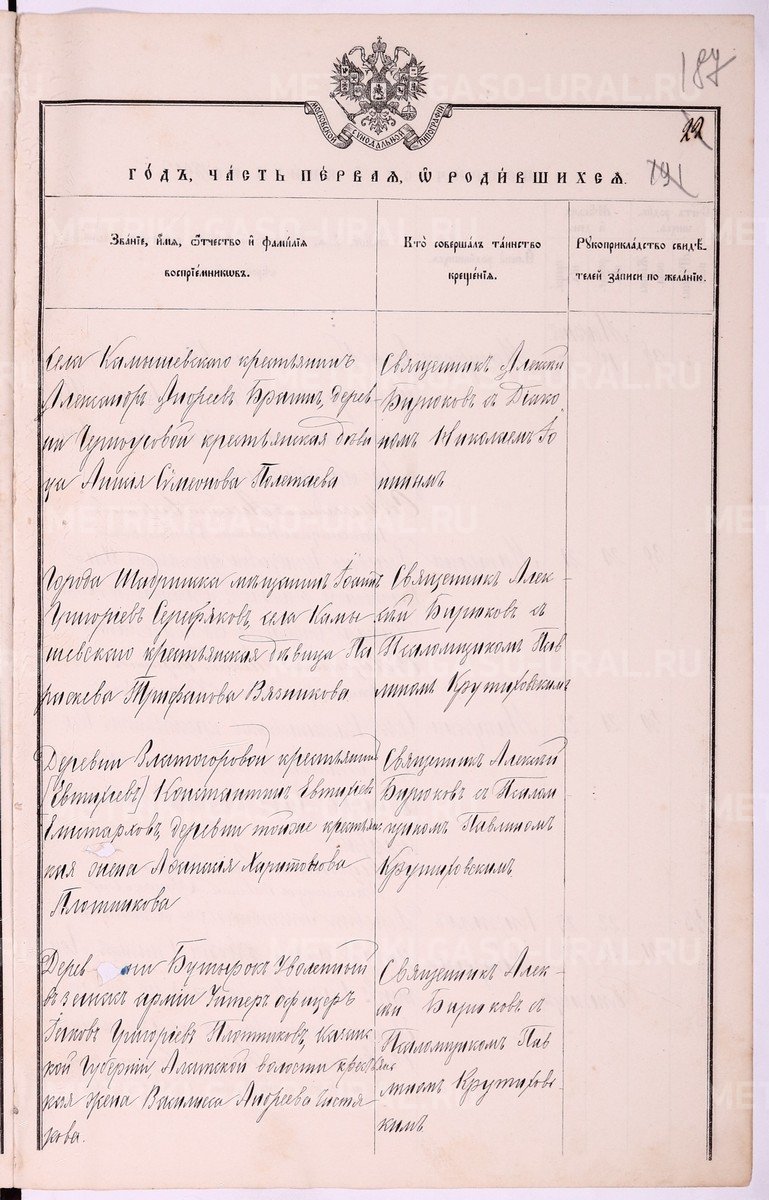 187
22
191
МОСКОВСКОЙ СѴНОДАЛЬНОЙ ТИПОГРАФІИ
ГО́ДЪ, ЧА́СТЬ ПЕ́РВАЯ, Ѡ҆ РОДИ́ВШИХСЯ.
Зва́нїе, и҆́мя, ѻ҆́тчество и҆ фами́лїя
воспрїе́мникѡвъ.
Кто̀ соверша́лъ та́инство
креще́нїя.
Рꙋкоприкла́дство свидѣ́-
телей за́писи по жела́нїю.
Села Камышевского крестьянинъ
Александръ Андреевъ Брагинъ, дерев-
ни Черноусовой крестьянская дѣви
ца Симеонова Полетаева
Священникъ Алексiй
Бирюковъ съ Дiако
номъ Николаемъ Iо
нинымъ
Города Шадринска мѣщанинъ Iоаннъ
Григорiевъ Серебряковъ, села Камы-
шевского крестьянская дѣвица Па
раскева Трифанова Вязникова
Священникъ Алек-
сiй Бирюковъ съ
Псаломщикомъ Пав
линомъ Крутиховскимъ
Деревни Златогоровой крестьянинъ
[Евтихiевъ] Константинъ Евтихiевъ
деревни тойже крестьянс
кая жена Харитонова
Плотникова
Священникъ Алексiй
Бирюковъ съ Псалом
щикомъ Павлиномъ
Крутиховскимъ
Деревни Бутырокъ Уволенный
въ армiи Унтеръ офицеръ
Iаковъ Григорiевъ Плотниковъ, Казанс
кой Губернiи, волости крестьянс
кая жена Василиса Андреева Чистя
кова.
Священникъ Алек-
сiй Бирюковъ съ
Псаломщикомъ Пав
линомъ Крутиховс-
кимъ
METRIKI.GASO-URAL.RU